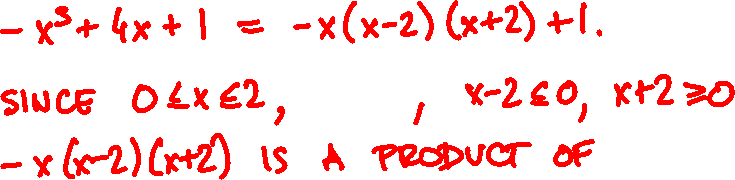 -x³+4x+1 = -x(x-2)(x+2)+1.
SINCE 0≤x≤2, , x-2≤0, x+2≥0
-x(x-2)(x+2) IS A PRODUCT OF